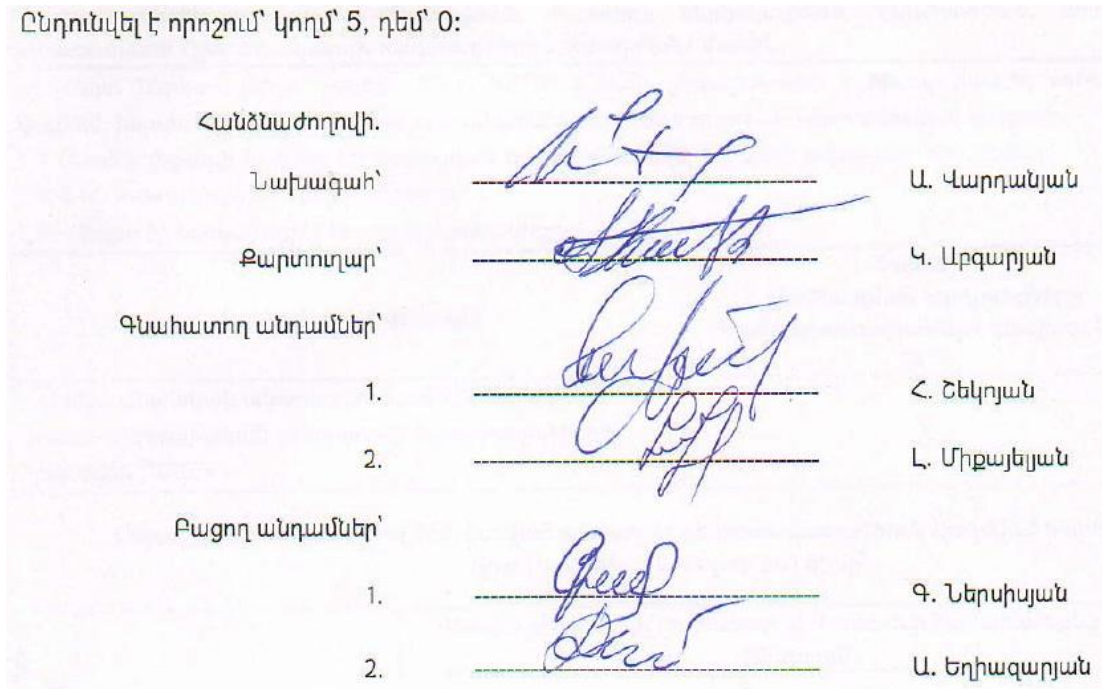 Ընդունվել է որոշում՝ կողմ՝ 5, դեմ՝ 0:
Հանձնաժողովի
Նախագահ՝ Ա. Վարդանյան
Քարտուղար՝ Կ. Արգարյան
Գնահատող անդամներ՝
1. Հ. Շեկոյան
2. Լ. Միքայելյան
Բացող անդամներ՝
1. Գ. Ներսիսյան
2. Ա. Եղիազարյան